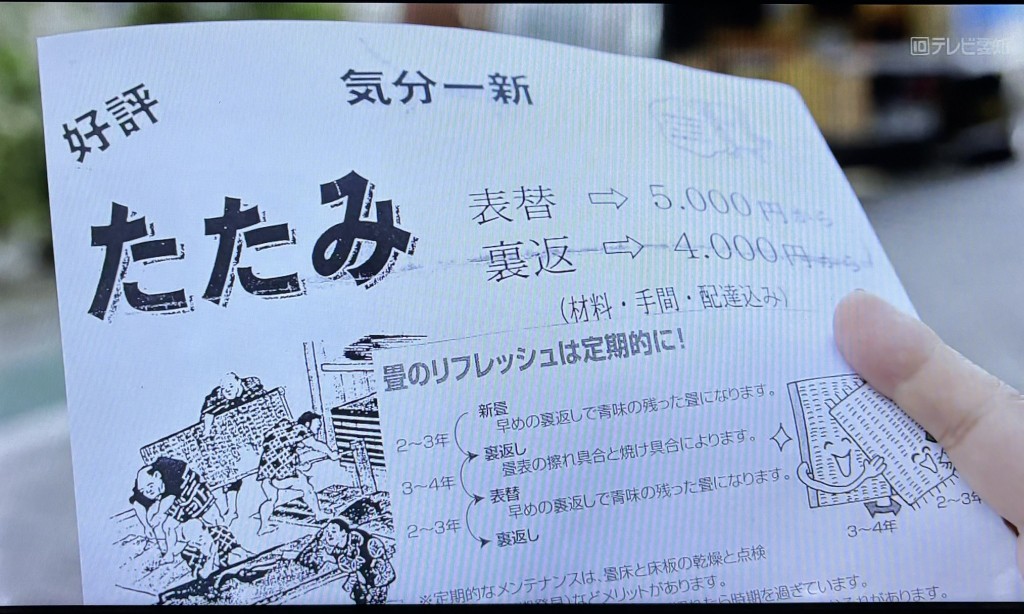 10テレビ愛知
好評
気分一新
たたみ
表替 ⇨ 5.000円から
裏返 ⇨ 4.000円から
(材料・手間・配達込み)
畳のリフレッシュは定期的に!
新畳
早めの裏返しで青味の残った畳になります。
2〜3年
裏返し
畳表の擦れ具合と焼け具合によります。
3〜4年
表替
早めの裏返しで青味の残った畳になります。
2〜3年
裏返し
3〜4年
2〜3年
※定期的なメンテナンスは、畳床と床板の乾燥と点検
などメリットがあります。
たら時期を過ぎています。
があります。